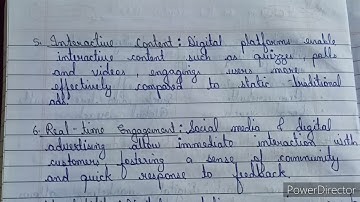 5. Interactive Content: Digital platforms enable
interactive content such as quizzes, polls
and videos, engaging users more
effectively compared to static traditional
ads.
6. Real-time Engagement: Social media & digital
advertising allow immediate interaction with
customers fostering a sense of community
and quick response to feedback.
PowerDirector